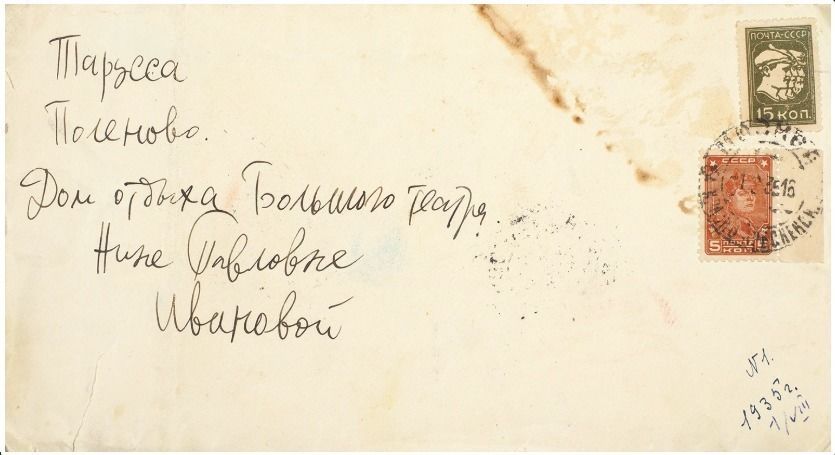 Тарусса
Поленово.
Дом отдыха Большого театра.
Нине Павловне
Ивановой
ПОЧТА-СССР
15 КОП.
МОСКВА
СССР
5
КОП.
N 1.
1935 г.
1/VIII